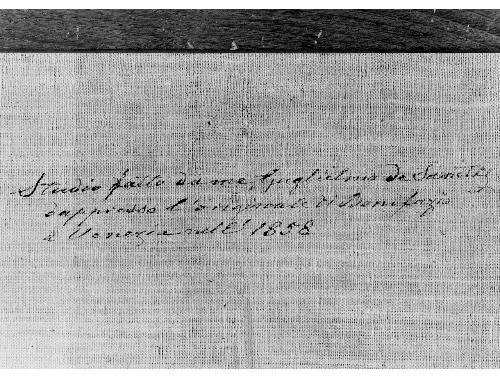 Studio fatto da me, Guglielmo de Sanctis
dappresso l'originale di Bonifazio
a Venezia nel 1858